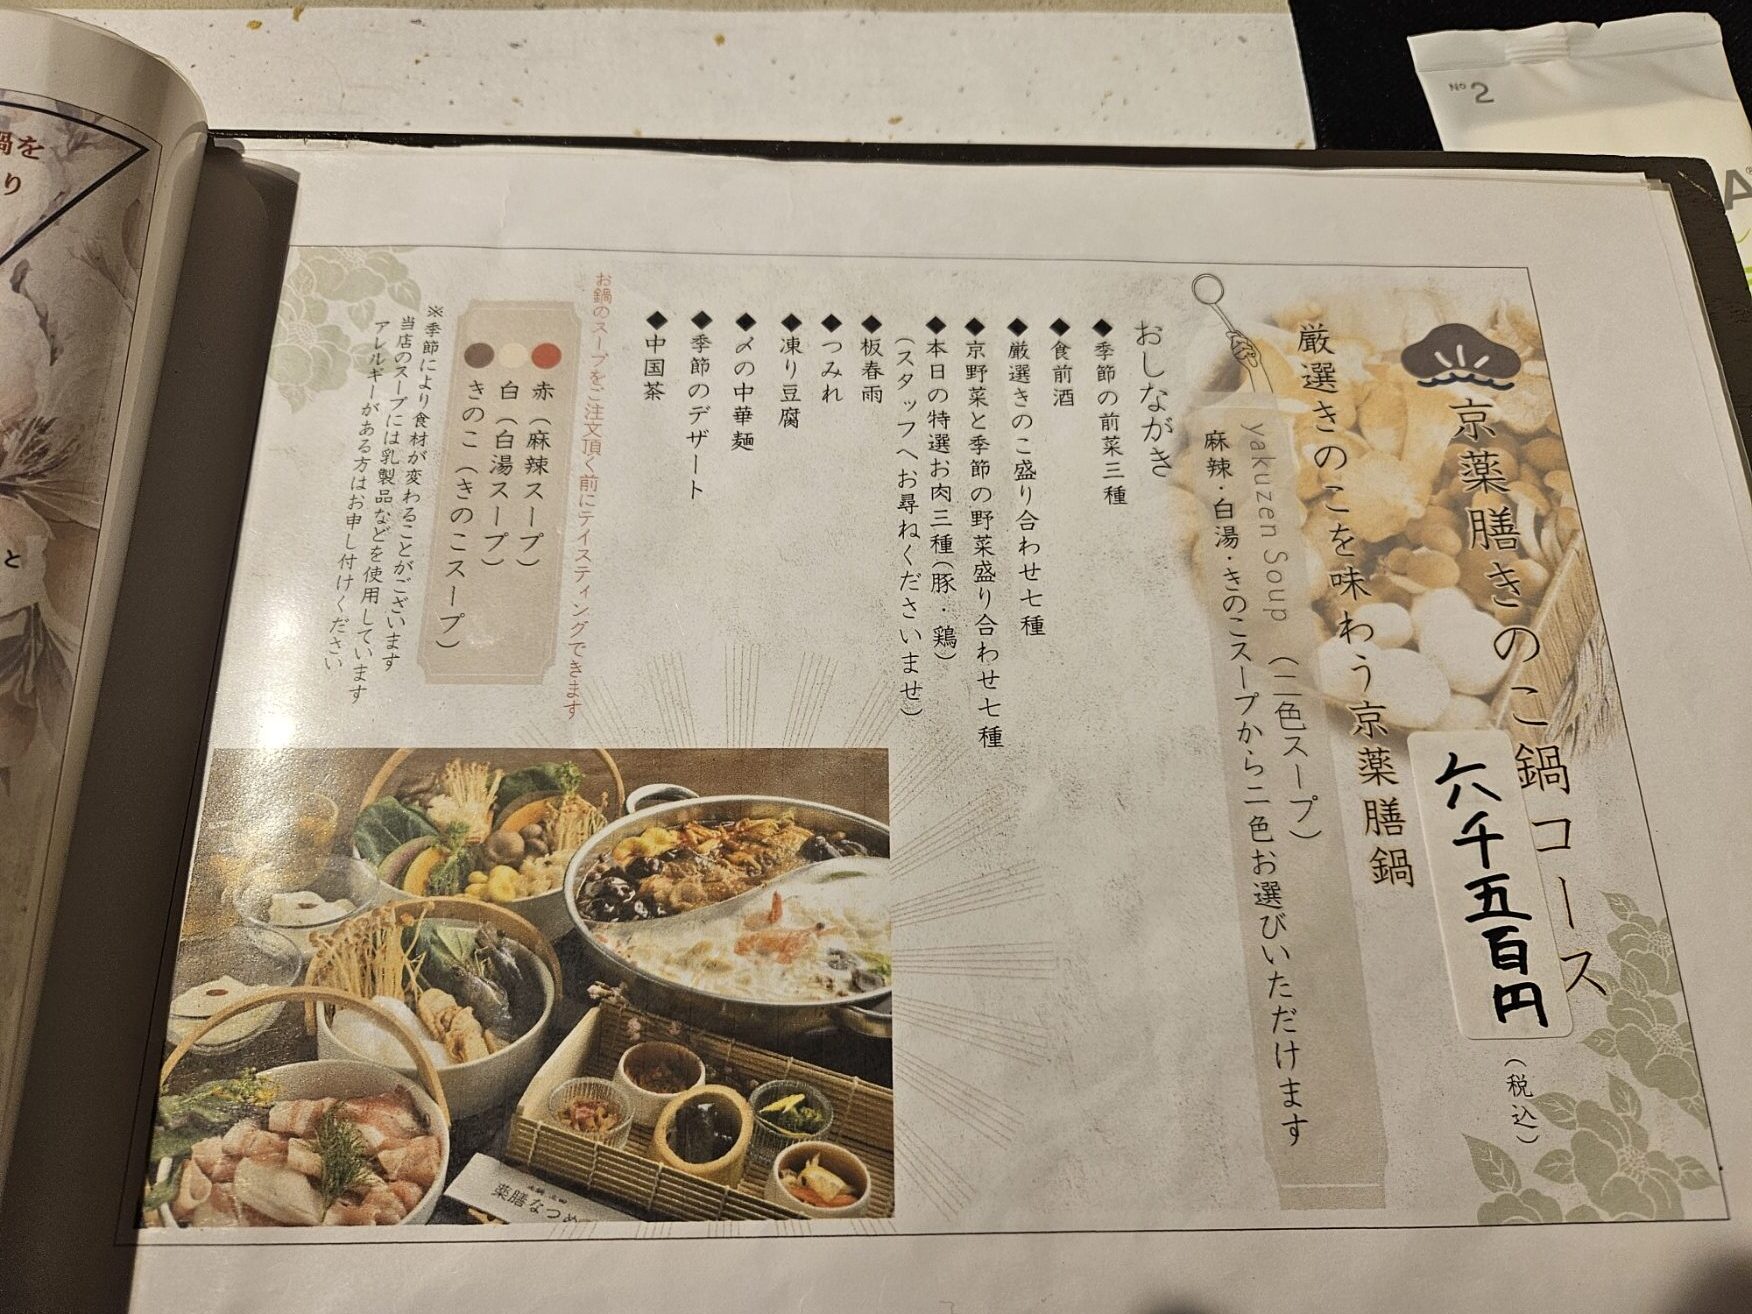 京薬膳きのこ鍋コース
六千五百円
（税込）
厳選きのこを味わう京薬膳鍋
yakuzen Soup （二色スープ）
麻辣・白湯・きのこスープから二色お選びいただけます
おしながき
◆季節の前菜三種
◆食前酒
◆厳選きのこ盛り合わせ七種
◆京野菜と季節の野菜盛り合わせ七種
◆本日の特選お肉三種（豚・鶏）
（スタッフへお尋ねくださいませ）
◆板春雨
◆つみれ
◆凍り豆腐
◆〆の中華麺
◆季節のデザート
◆中国茶
お鍋のスープをご注文頂く前にテイスティングできます
赤（麻辣スープ）
白（白湯スープ）
きのこ（きのこスープ）
※季節により食材が変わることがございます
当店のスープには乳製品などを使用しています
アレルギーがある方はお申し付けください
薬膳なつめ
鍋を
り
と
No 2
A